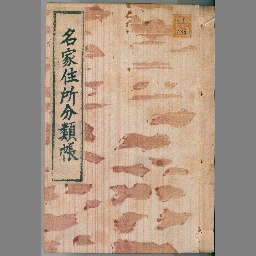 名家住所分類帳